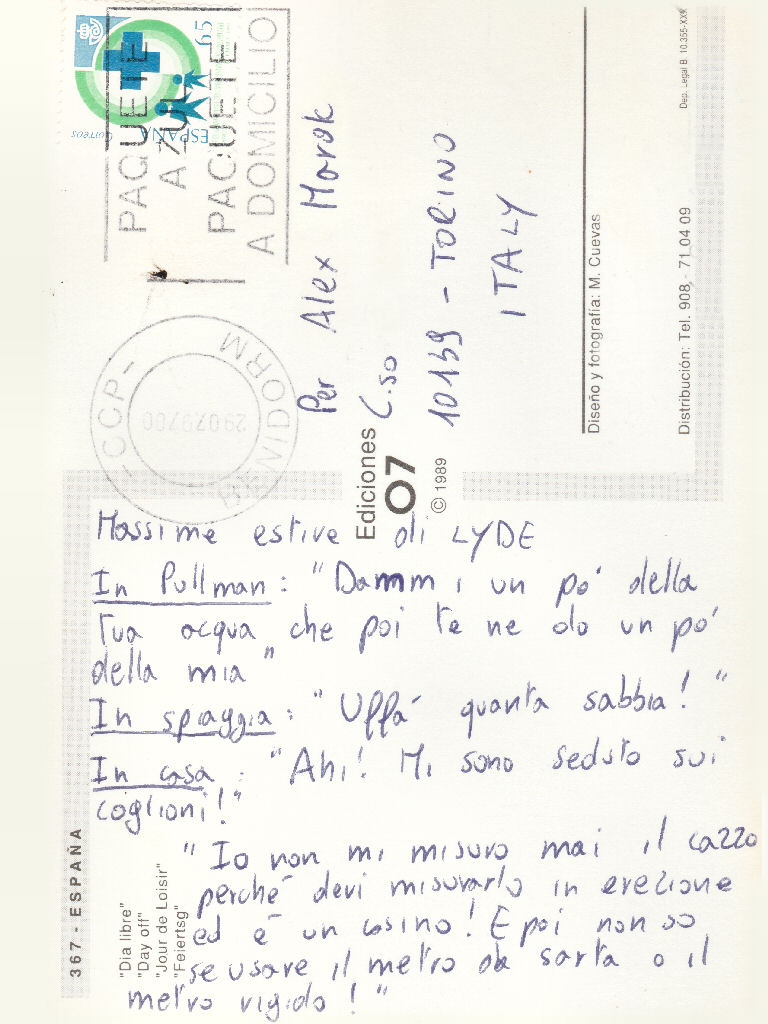 Massime estive di LYDE
In Pullman: "Dammi un po' della
tua acqua che poi te ne do un po'
della mia"
In spiaggia: "Uffa' quanta sabbia!"
In casa: "Ahi! Mi sono seduto sui
coglioni!"
"Io non mi misuro mai il cazzo
perché devi misurarlo in erezione
ed è un casino! E poi non so
se usare il metro da sarta o il
metro rigido!"
Per Alex Marok
C.so
10139 - TORINO
ITALY
65
ESPAÑA
CORREOS
PAQUETE
AZUL
PAQUETE
A DOMICILIO
-CCP-
BENIDORM
Ediciones
07
© 1989
Diseño y fotografía: M. Cuevas
Distribución: Tel. 908 - 71 04 09
Dep. Legal B. 10.355-XXX
367 - ESPAÑA
"Dia libre"
"Day off"
"Jour de Loisir"
"Feiertsg"